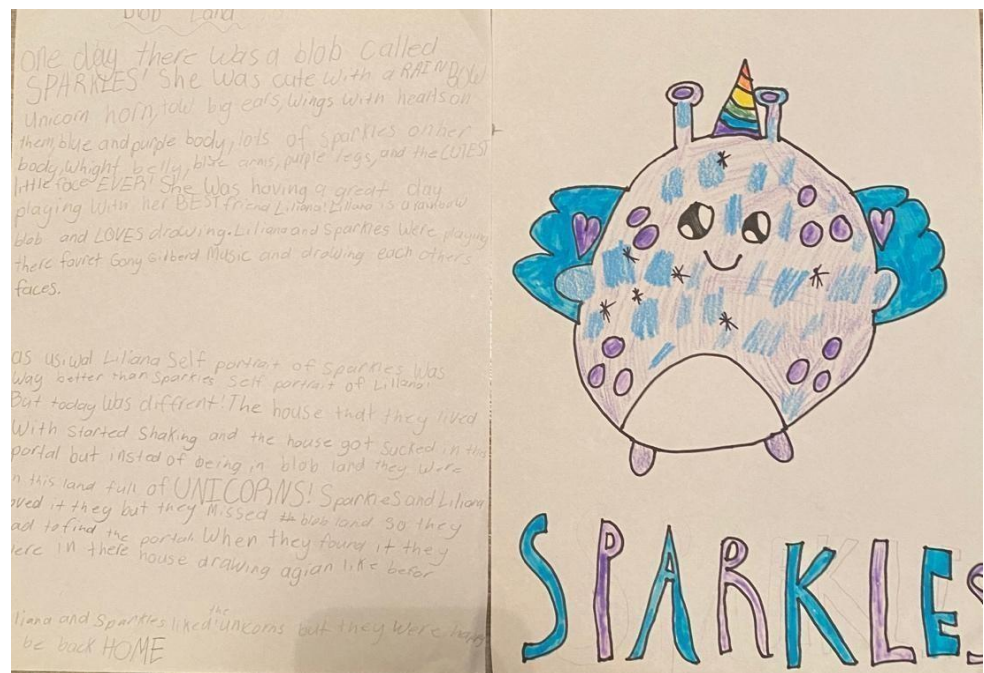 Blob Land
one day there was a blob called
SPARKLES! She was cute with a RAINBOW
unicorn horn, tow big ears, wings with hearts on
them, blue and purple body, lots of sparkles on her
body, whight belly, blue arms, purple legs, and the CUTEST
little face EVER! She was having a great day
playing with her BEST friend Liliana! Liliana is a rainbow
blob and LOVES drawing. Liliana and Sparkles were playing
there favriet Gany Gilberd Music and drawing each others
faces.
as usiwal Liliana Self portrait of Sparkles was
way better than Sparkles self portrait of Liliana!
But today was diffrent! The house that they lived
with started shaking and the house got sucked in this
portal but insted of being in blob land they were
n this land full of UNICORNS! Sparkles and Liliana
oved it they but they missed blob land so they
ad to find the portal. When they found it they
ere in there house drawing agian like befor
liana and Sparkles liked the unicorns but they were happy
be back HOME
SPARKLES